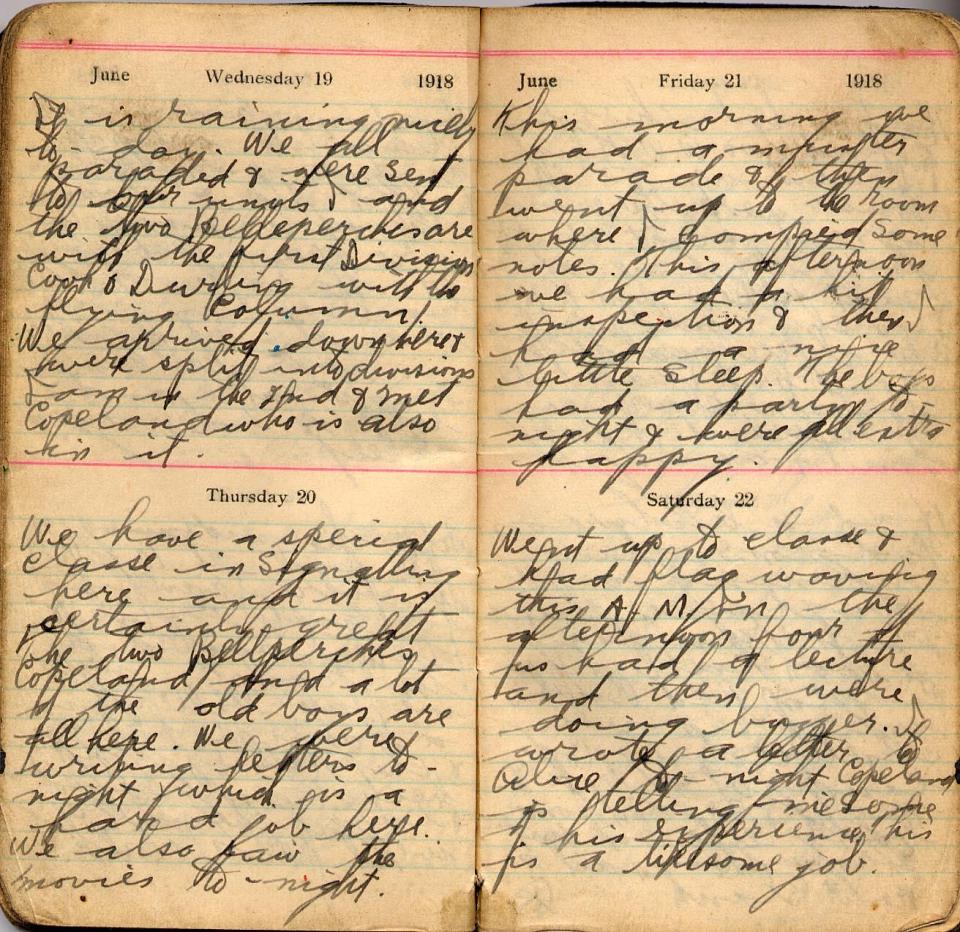 June Wednesday 19 1918
It is raining nicely
to-day. We all
paraded & were sent
to our units and
the two Bellperches are
with the first Division
Cook & Durling with the
flying Column.
We arrived down here &
were split into divisions
I am in the 2nd & met
Copeland who is also
in it.
Thursday 20
We have a special
classe in Signalling
here and it is
certainly great
the two Bellperches
Copeland and a lot
of the old boys are
all here. We were
writing letters to-
night which is a
hard job here.
We also saw the
movies to-night.
June Friday 21 1918
This morning we
had a muster
parade & then
went up to the room
where I some
notes. This afternoon
we had a kit
inspection & then I
had a nice
little sleep. The boys
had a party to-
night & were all extra
happy.
Saturday 22
Went up to classe &
had flag waving
this A.M. In the
afternoon four of
us had a lecture
and then were
doing buzzer. I
wrote a letter to
Alice to-night Copeland
is telling me some
of his experience, his
is a job.